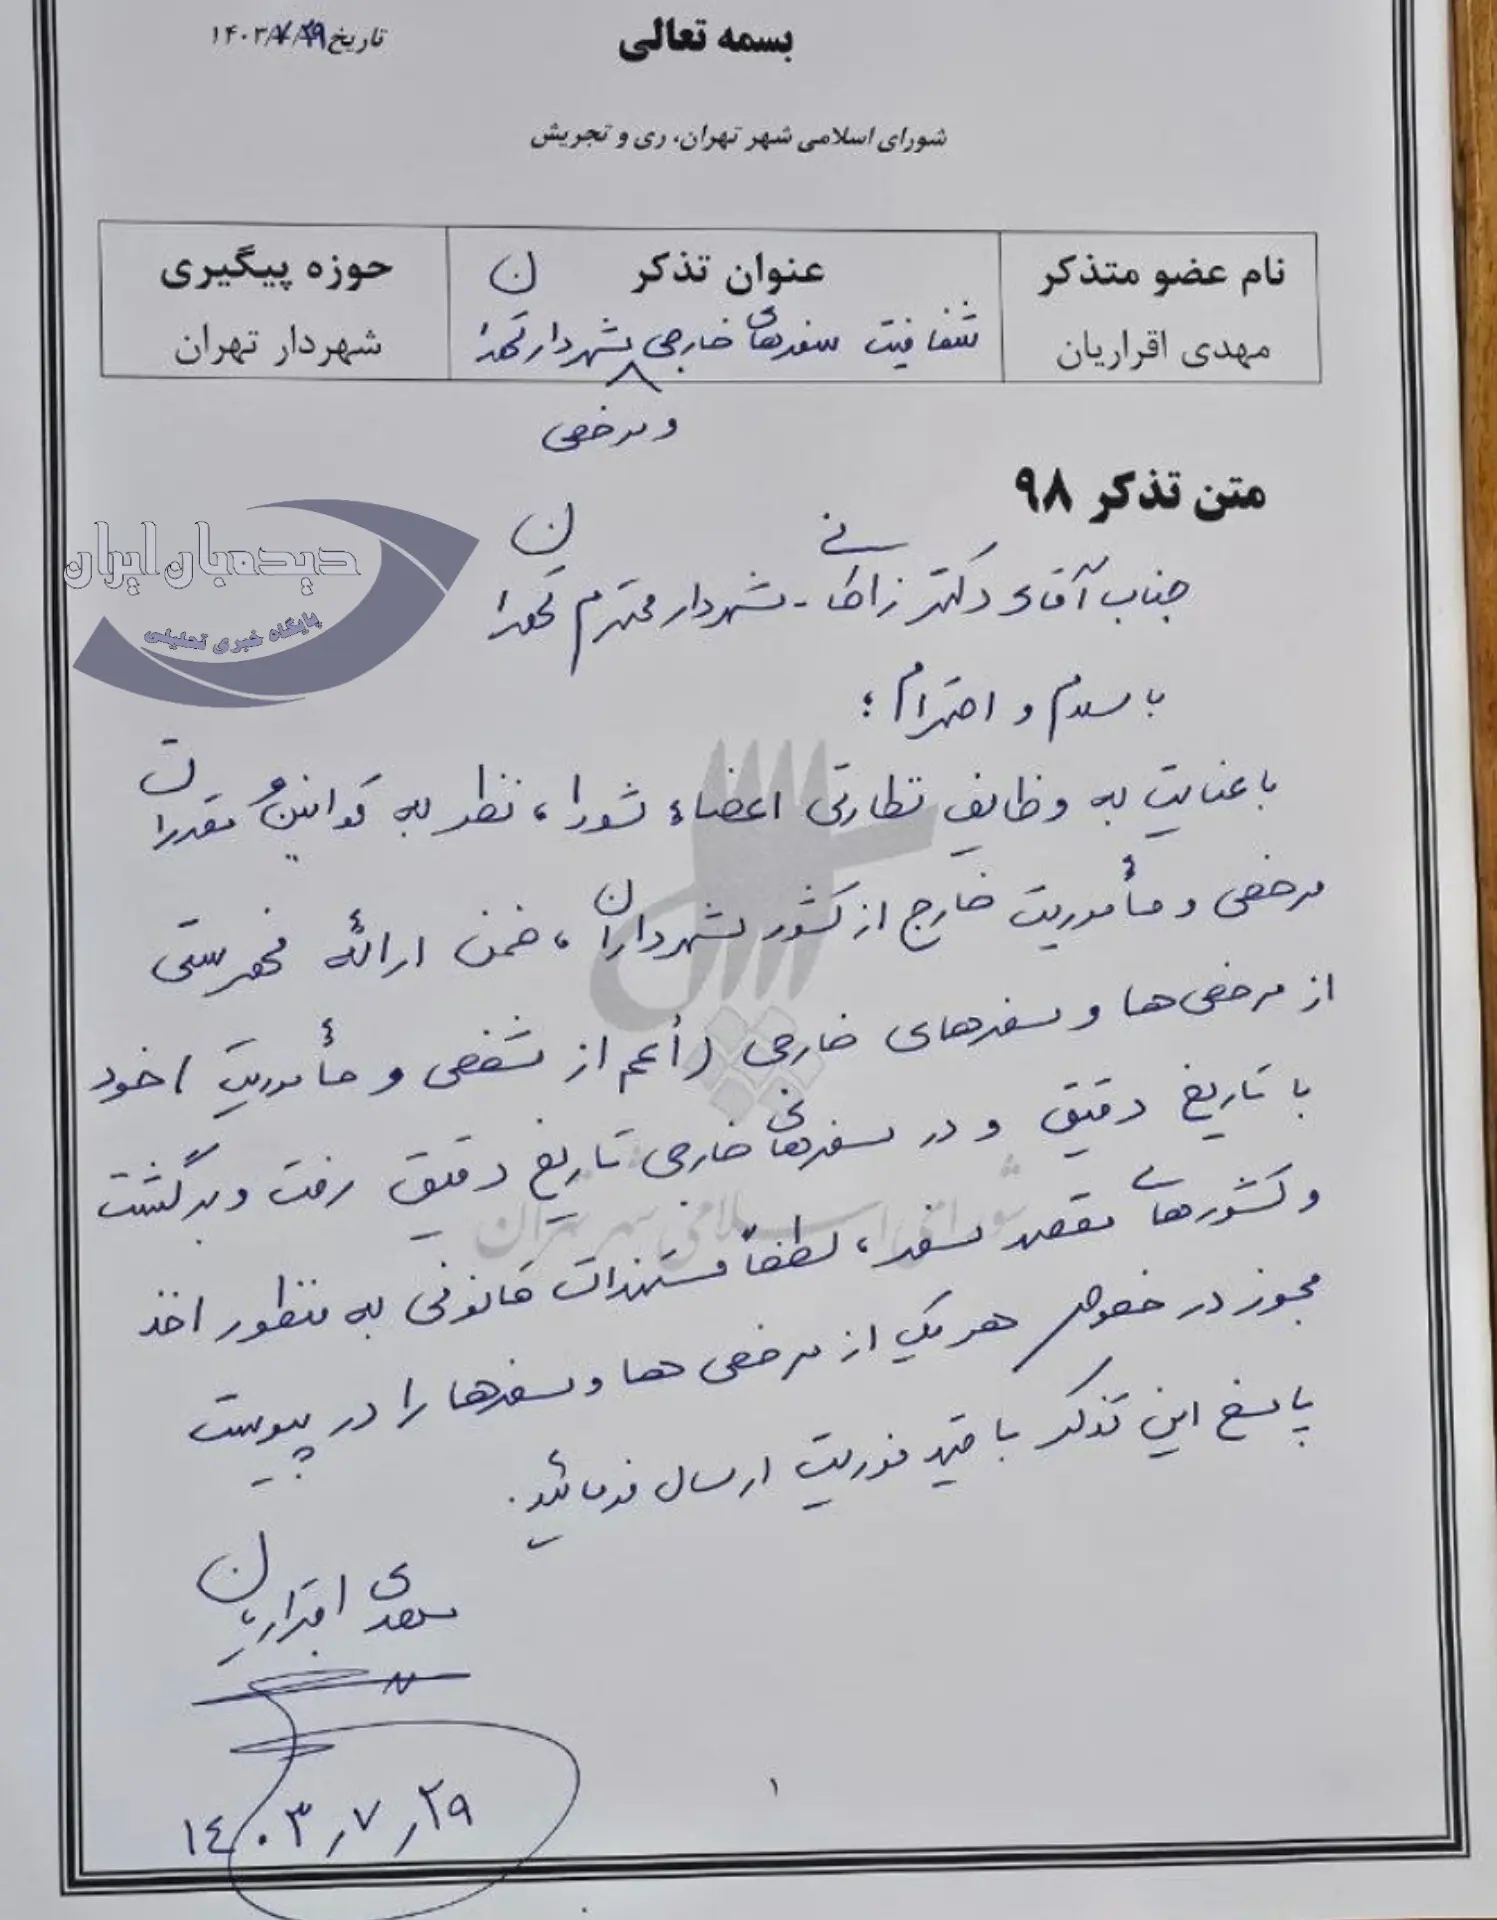 بسمه تعالی
تاریخ ۱۴۰۳/۷/۲۹
شورای اسلامی شهر تهران، ری و تجریش
نام عضو متذکر
مهدی اقراریان
عنوان تذکر
شفافیت سفرهای خارجی شهردار تهران
و مرخصی
حوزه پیگیری
شهردار تهران
متن تذکر ۹۸
دیده‌بان ایران
پایگاه خبری تحلیلی
جناب آقای دکتر زاکانی - شهردار محترم تهران
با سلام و احترام؛
با عنایت به وظایف نظارتی اعضاء شورا، نظر به قوانین و مقررات
مرخصی و مأموریت خارج از کشور شهرداران، ضمن ارائه فهرستی
از مرخصی‌ها و سفرهای خارجی (أعم از شخصی و مأموریت) خود
با تاریخ دقیق و در سفرهای خارجی تاریخ دقیق رفت و برگشت
و کشورهای مقصد سفر، لطفاً مستندات قانونی به منظور اخذ
مجوز در خصوص هر یک از مرخصی ها و سفرها را در پیوست
پاسخ این تذکر با قید فوریت ارسال فرمائید.
مهدی اقراریان
۱۴۰۳/۷/۲۹
۱
شورای اسلامی شهر تهران